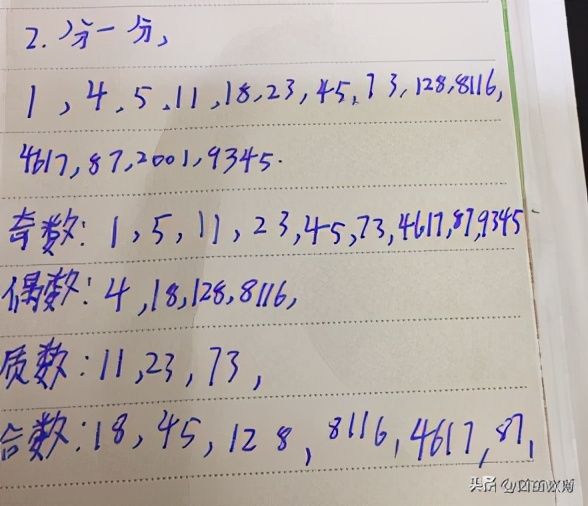 2. 分一分,
1, 4, 5, 11, 18, 23, 45, 73, 128, 8116,
4617, 87, 2001, 9345.
奇数: 1, 5, 11, 23, 45, 73, 4617, 87, 9345
偶数: 4, 18, 128, 8116,
质数: 11, 23, 73,
合数: 18, 45, 128, 8116, 4617, 87,
头条